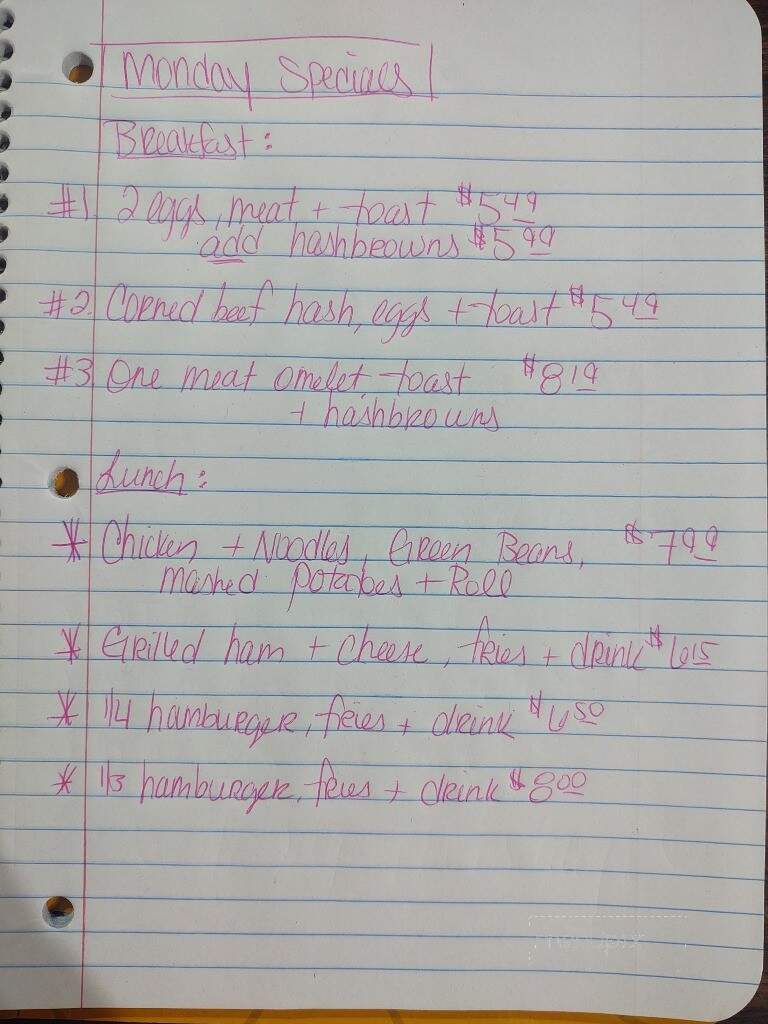 Monday Specials
Breakfast:
#1 2 eggs, meat + toast $5 49
add hashbrowns $5 99
#2. Corned beef hash, eggs + toast $5 49
#3 One meat omelet toast $8 19
+ hashbrowns
Lunch:
* Chicken + Noodles, Green Beans, $7 99
mashed potatoes + Roll
* Grilled ham + cheese, fries + drink $6 15
* 1/4 hamburger, fries + drink $6 50
* 1/3 hamburger, fries + drink $8 00
menupix